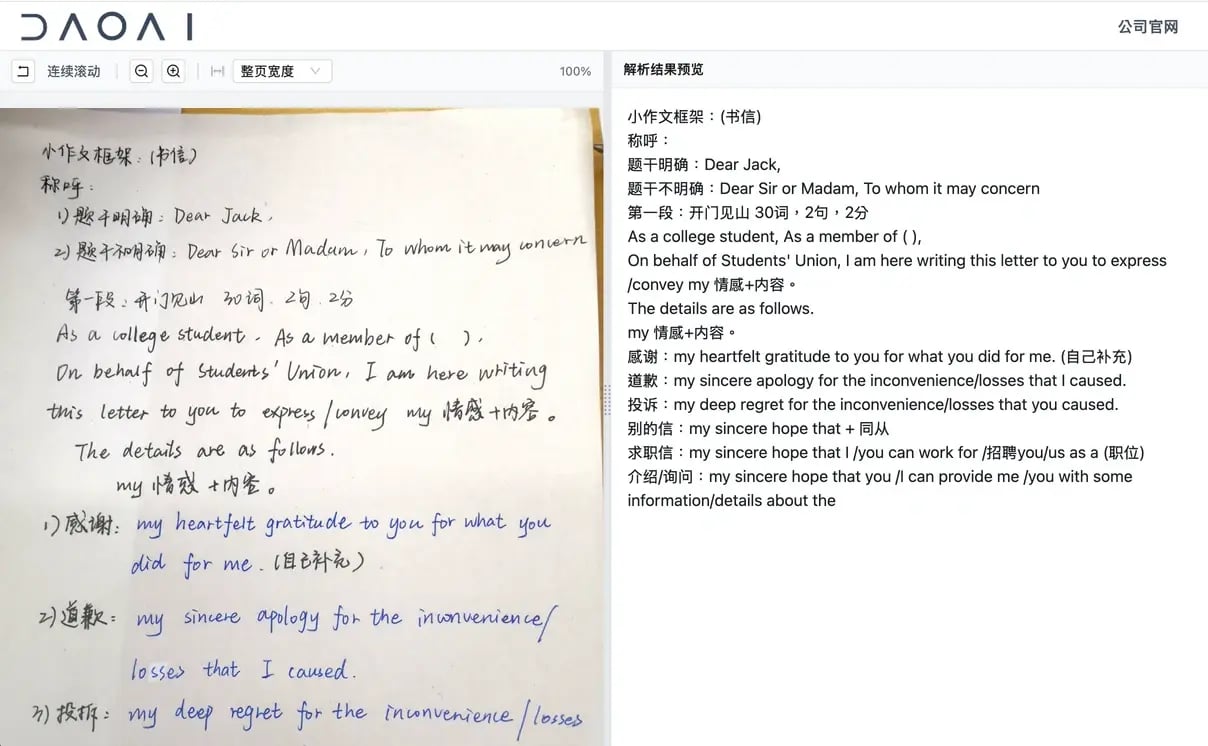 DAOAI
公司官网
连续滚动
整页宽度
100%
解析结果预览
小作文框架：(书信)
称呼：
1) 题干明确：Dear Jack,
2) 题干不明确：Dear Sir or Madam, To whom it may concern
第一段：开门见山 30词. 2句. 2分
As a college student. As a member of ( ).
On behalf of Students' Union, I am here writing
this letter to you to express/convey my 情感+内容。
The details are as follows.
my 情感+内容。
1) 感谢: my heartfelt gratitude to you for what you
did for me. (自己补充)
2) 道歉: my sincere apology for the inconvenience/
losses that I caused.
3) 投拆: my deep regret for the inconvenience/losses
小作文框架：(书信)
称呼：
题干明确：Dear Jack,
题干不明确：Dear Sir or Madam, To whom it may concern
第一段：开门见山 30词，2句，2分
As a college student, As a member of ( ),
On behalf of Students' Union, I am here writing this letter to you to express
/convey my 情感+内容。
The details are as follows.
my 情感+内容。
感谢：my heartfelt gratitude to you for what you did for me. (自己补充)
道歉：my sincere apology for the inconvenience/losses that I caused.
投诉：my deep regret for the inconvenience/losses that you caused.
别的信：my sincere hope that + 同从
求职信：my sincere hope that I /you can work for /招聘you/us as a (职位)
介绍/询问：my sincere hope that you /I can provide me /you with some
information/details about the